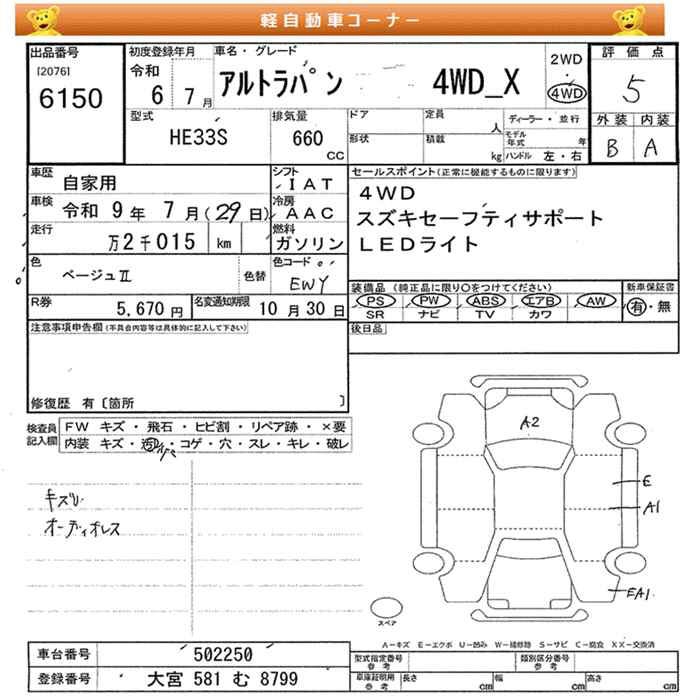 軽自動車コーナー
出品番号
[2076]
6150
初度登録年月
令和
6 7月
車名・グレード
アルトラパン 4WD_X
2WD
・
4WD
評価点
5
外装 内装
B A
型式
HE33S
排気量
660
CC
ドア
形状
定員
人
積載
kg
ディーラー・並行
モデル年式 年
ハンドル 左・右
車歴
自家用
シフト
IAT
車検
令和 9年 7月(29日)
冷房
AAC
走行
万2千015 km
燃料
ガソリン
セールスポイント(正常に機能するものに限ります)
4WD
スズキセーフティサポート
LEDライト
色
ベージュⅡ
色替
色コード
EWY
装備品(純正品に限り○をつけてください)
PS PW ABS エアB AW
SR ナビ TV カワ
新車保証書
有・無
R券
5,670円
名変通知期限
10月30日
後日品
注意事項申告欄(不具合内容等は具体的に記入して下さい)
修復歴 有〔箇所 〕
検査員記入欄
FW キズ・飛石・ヒビ割・リペア跡・×要
内装 キズ・ ・コゲ・穴・スレ・キレ・破レ
キズ
オーディオレス
A2
E
A1
EA1
スペア
A－キズ E－エクボ U－凹み W－補修跡 S－サビ C－腐食 XX－交換済
車台番号
502250
登録番号
大宮 581 む 8799
型式指定番号
参考
類別区分番号
参考
車庫証明用
参考
長さ cm
幅 cm
高さ cm